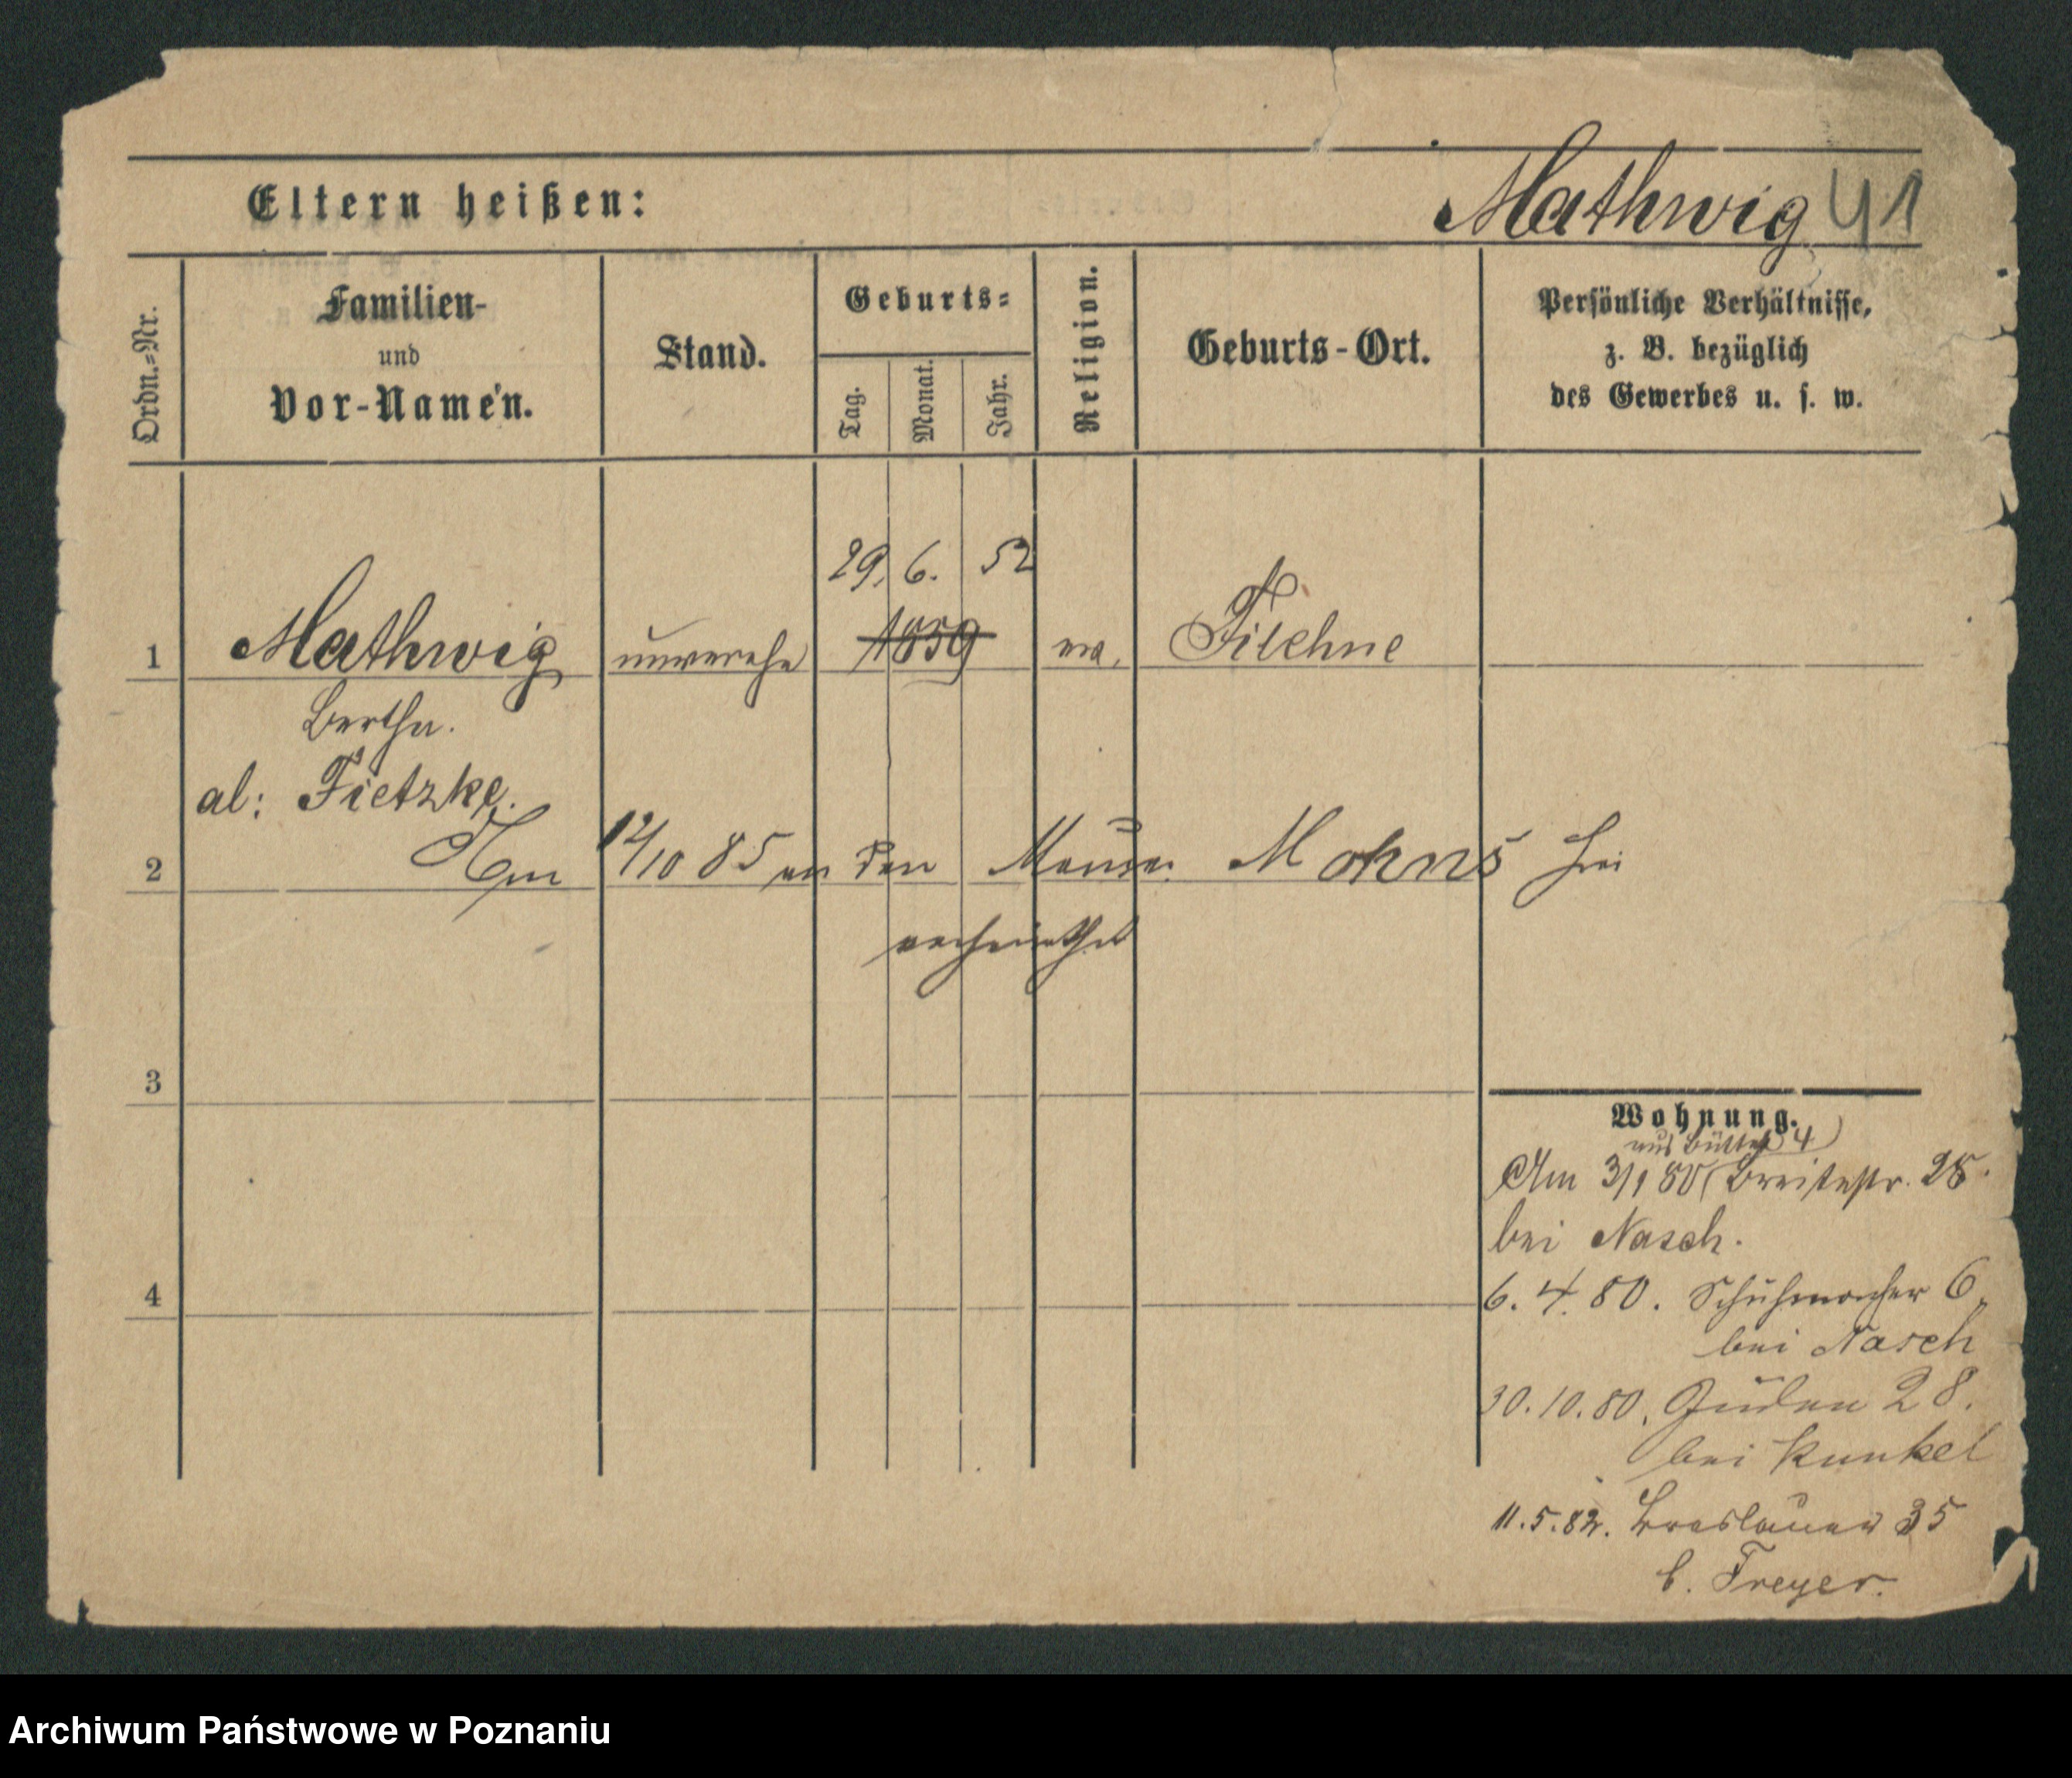 Eltern heißen:
Mathwig 41
Ordn.=Nr.
Familien-
und
Vor-Namen.
Stand.
Geburts=
Tag.
Monat.
Jahr.
Religion.
Geburts-Ort.
Persönliche Verhältnisse,
z. B. bezüglich
des Gewerbes u. s. w.
29. 6. 52
1 Mathwig unvereh 1859 ev. Filehne
Bertha.
al: Fietzke.
2 Am 12/10 85 an den Maurer Mohns hei
verheirathet
3
Wohnung.
aus Büttel 4)
Am 3/1 80 (Breitestr. 28.
bei Nasch.
4
6. 4. 80. Schuhmacher 6.
bei Nasch
30. 10. 80. Juden 28.
bei Kunkel
11. 5. 82. Breslauer 35
b. Freyer.
Archiwum Państwowe w Poznaniu